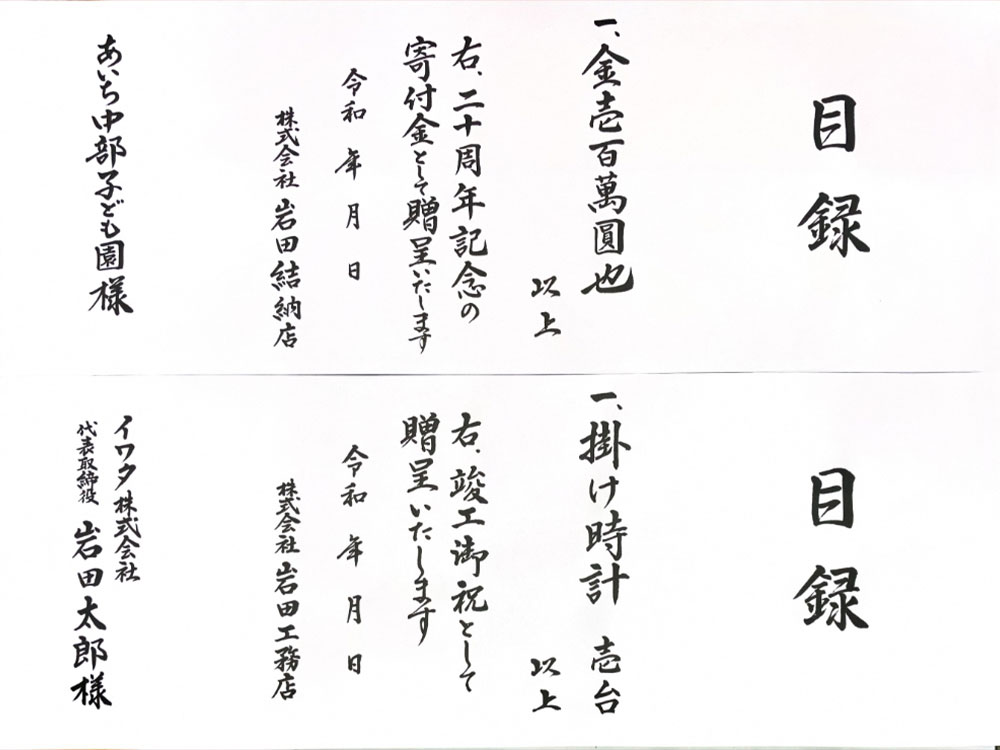 目録
一、金壱百萬圓也
以上
右、二十周年記念の
寄付金として贈呈いたします
令和 年 月 日
株式会社 岩田結納店
あいち中部子ども園様
目録
一、掛け時計 壱台
以上
右、竣工御祝として
贈呈いたします
令和 年 月 日
株式会社 岩田工務店
イワタ株式会社
代表取締役 岩田太郎様